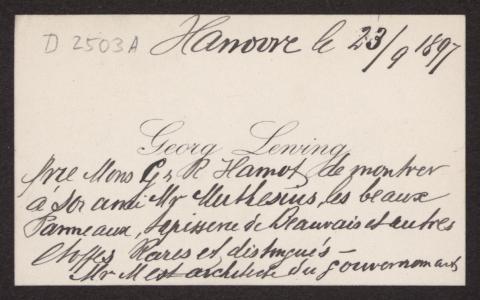 D 2503A
Hanovre le 23/9 1897
Georg Lewing
prie Mons G & R Hamot, de montrer
à son ami Mr Muthesius, les beaux
Panneaux, tapisserie de Beauvais et autres
étoffes Rares et distingués –
Mr M est architecte du gouvernement